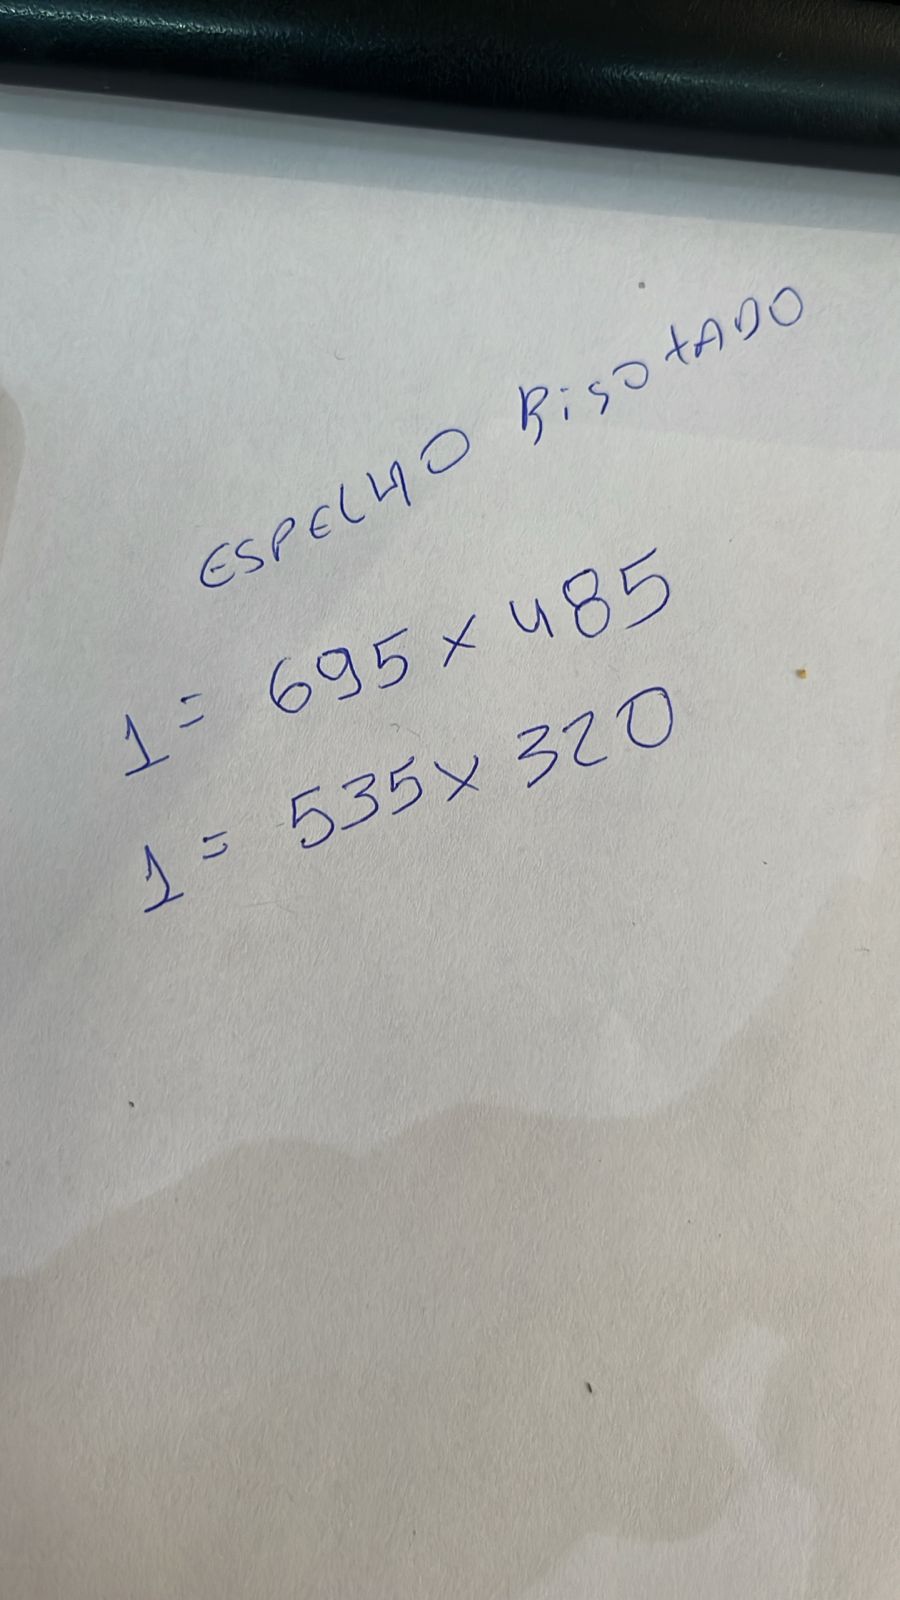 ESPELHO BisotADO
1 = 695 x 485
1 = 535 x 320